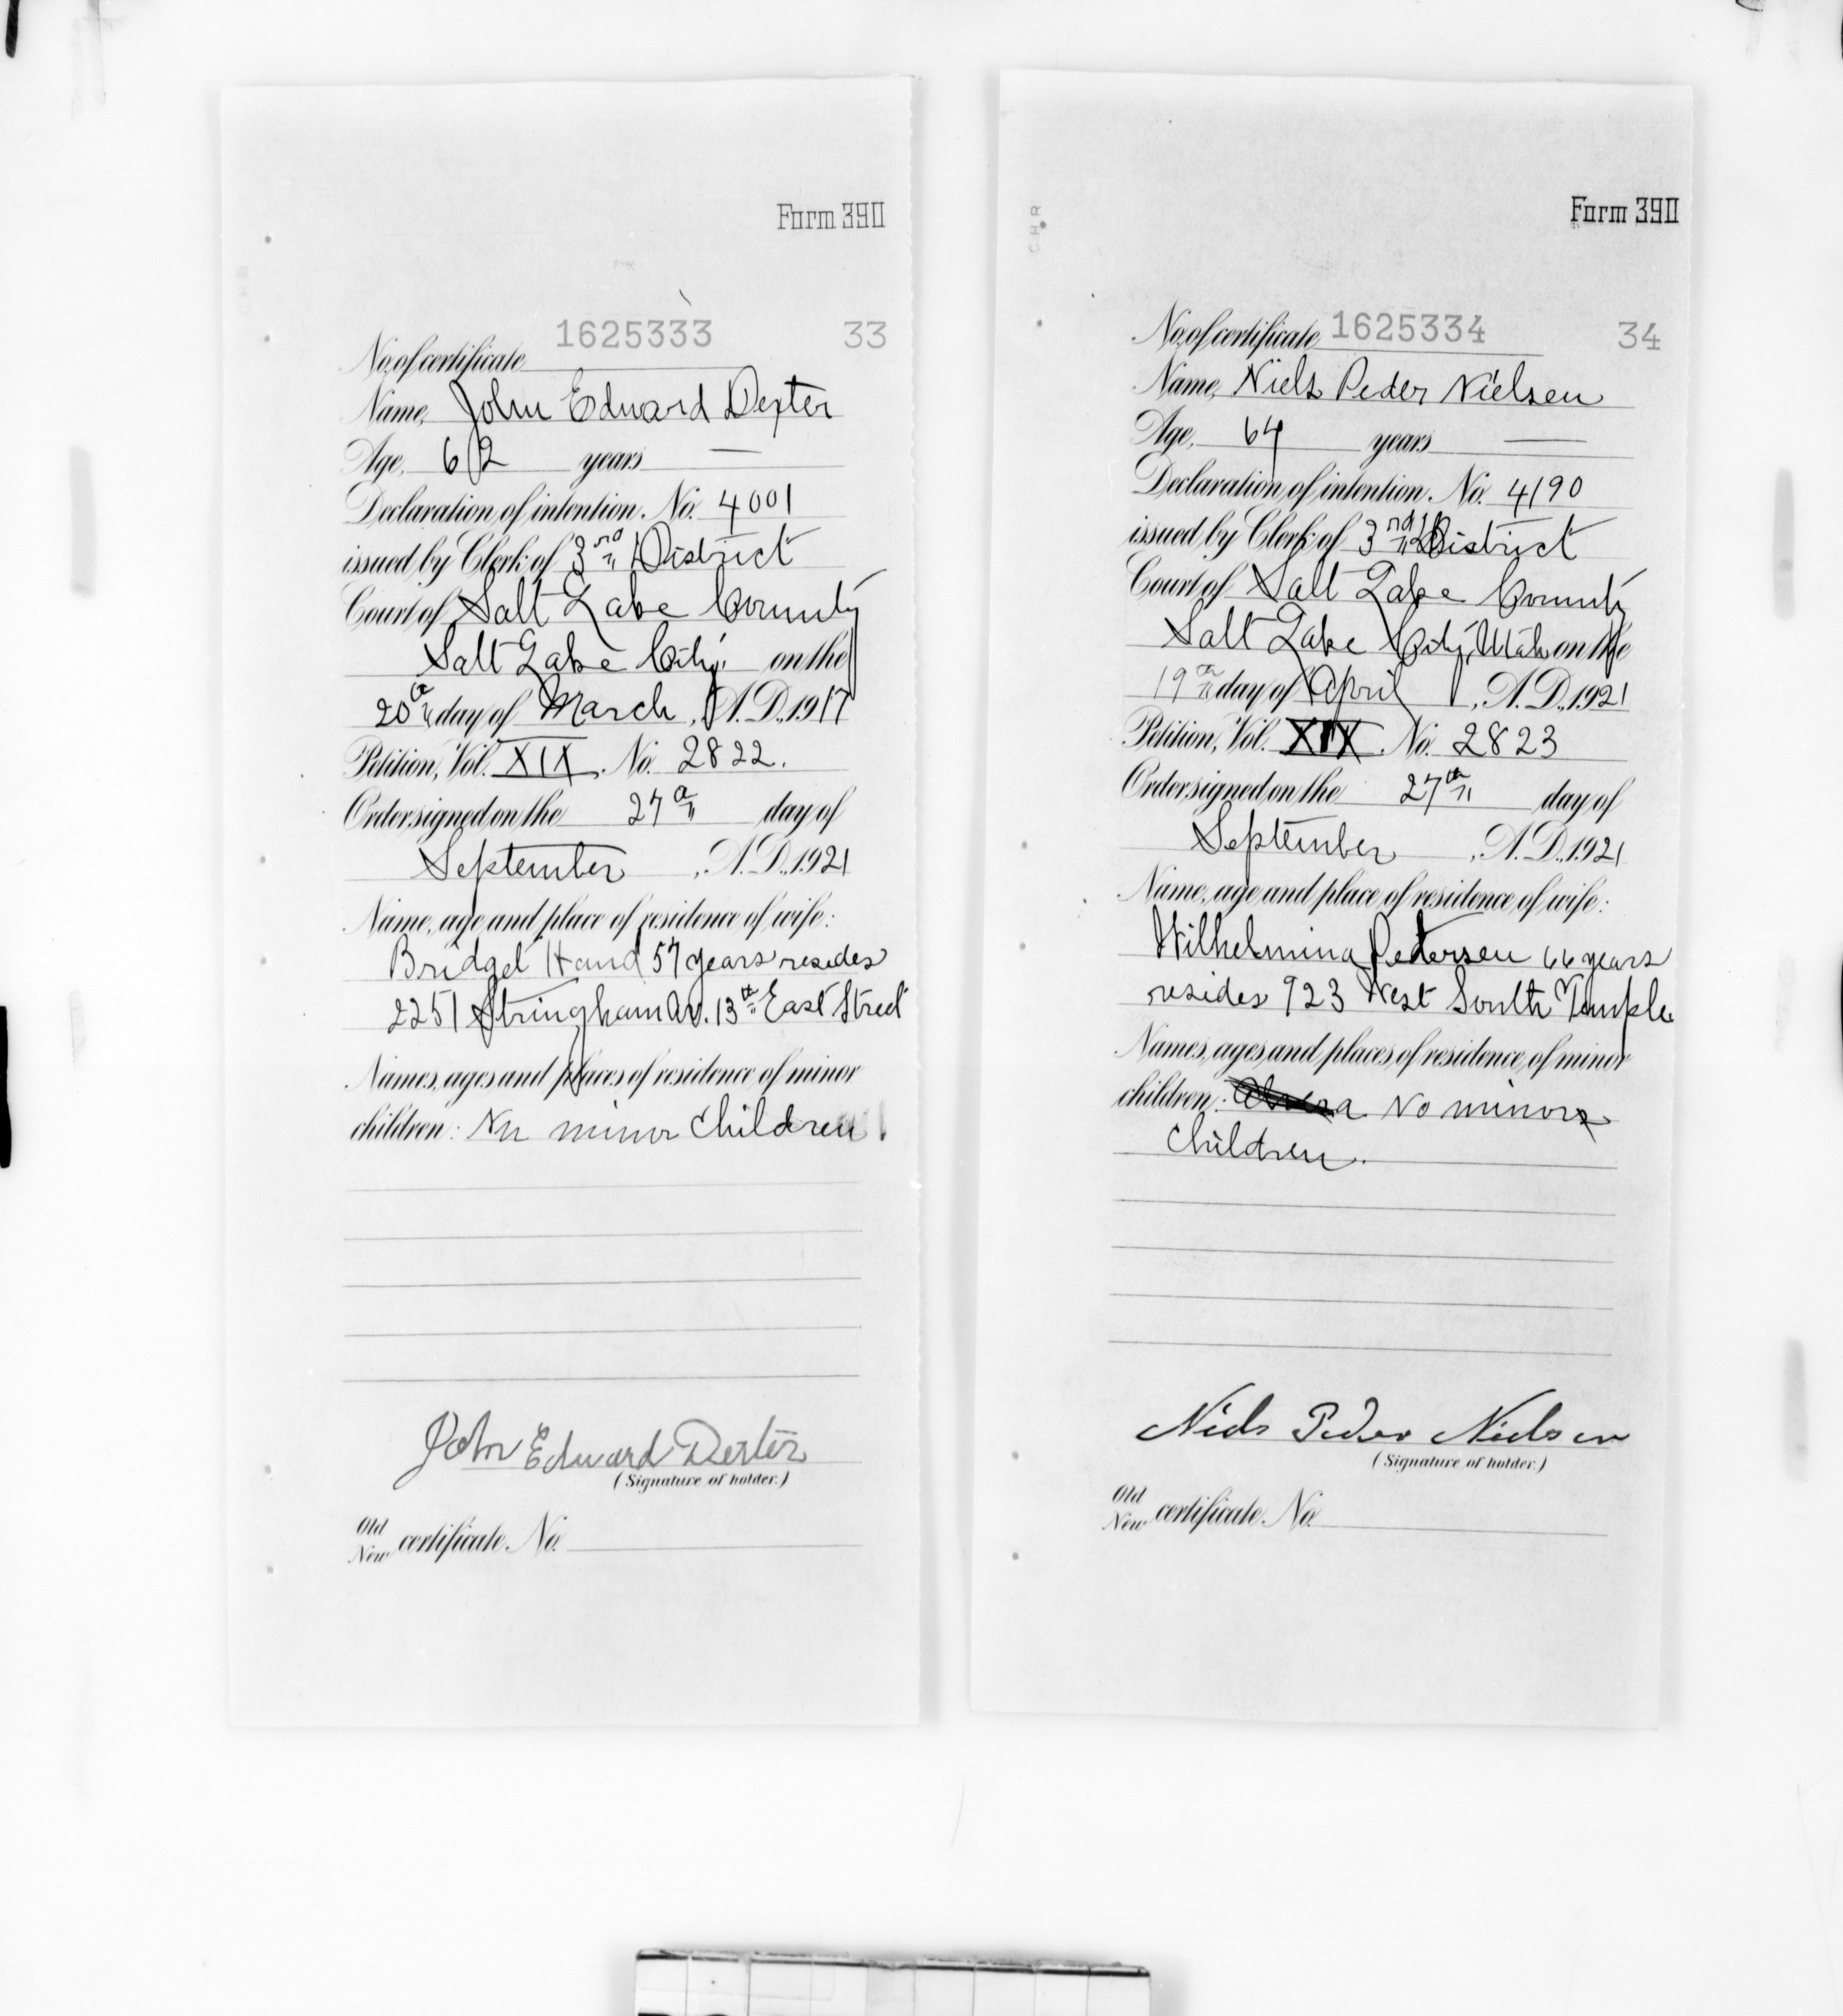 Form 390
1625333 33
No. of certificate
Name, John Edward Dexter
Age, 62 years —
Declaration of intention, No. 4001
issued by Clerk of 3rd District
Court of Salt Lake County
Salt Lake City on the
20th day of March, A.D., 1917
Petition, Vol. XIX. No. 2822.
Order signed on the 27th day of
September, A.D., 1921
Name, age and place of residence of wife:
Bridget Hand 57 years resides
2251 Stringham Av. 13th East Street
Names, ages and places of residence of minor
children: No minor Children
John Edward Dexter
(Signature of holder.)
Old
New certificate No.
Form 390
No. of certificate 1625334 34
Name, Niels Peder Nielsen
Age, 64 years —
Declaration of intention, No. 4190
issued by Clerk of 3rd District
Court of Salt Lake County
Salt Lake City, Utah on the
19th day of April, A.D., 1921
Petition, Vol. XIX. No. 2823
Order signed on the 27th day of
September, A.D., 1921
Name, age and place of residence of wife:
Wilhelmina Petersen 66 years
resides 923 West South Temple
Names, ages and places of residence of minor
children: No minor
Children.
Niels Peder Nielsen
(Signature of holder.)
Old
New certificate No.